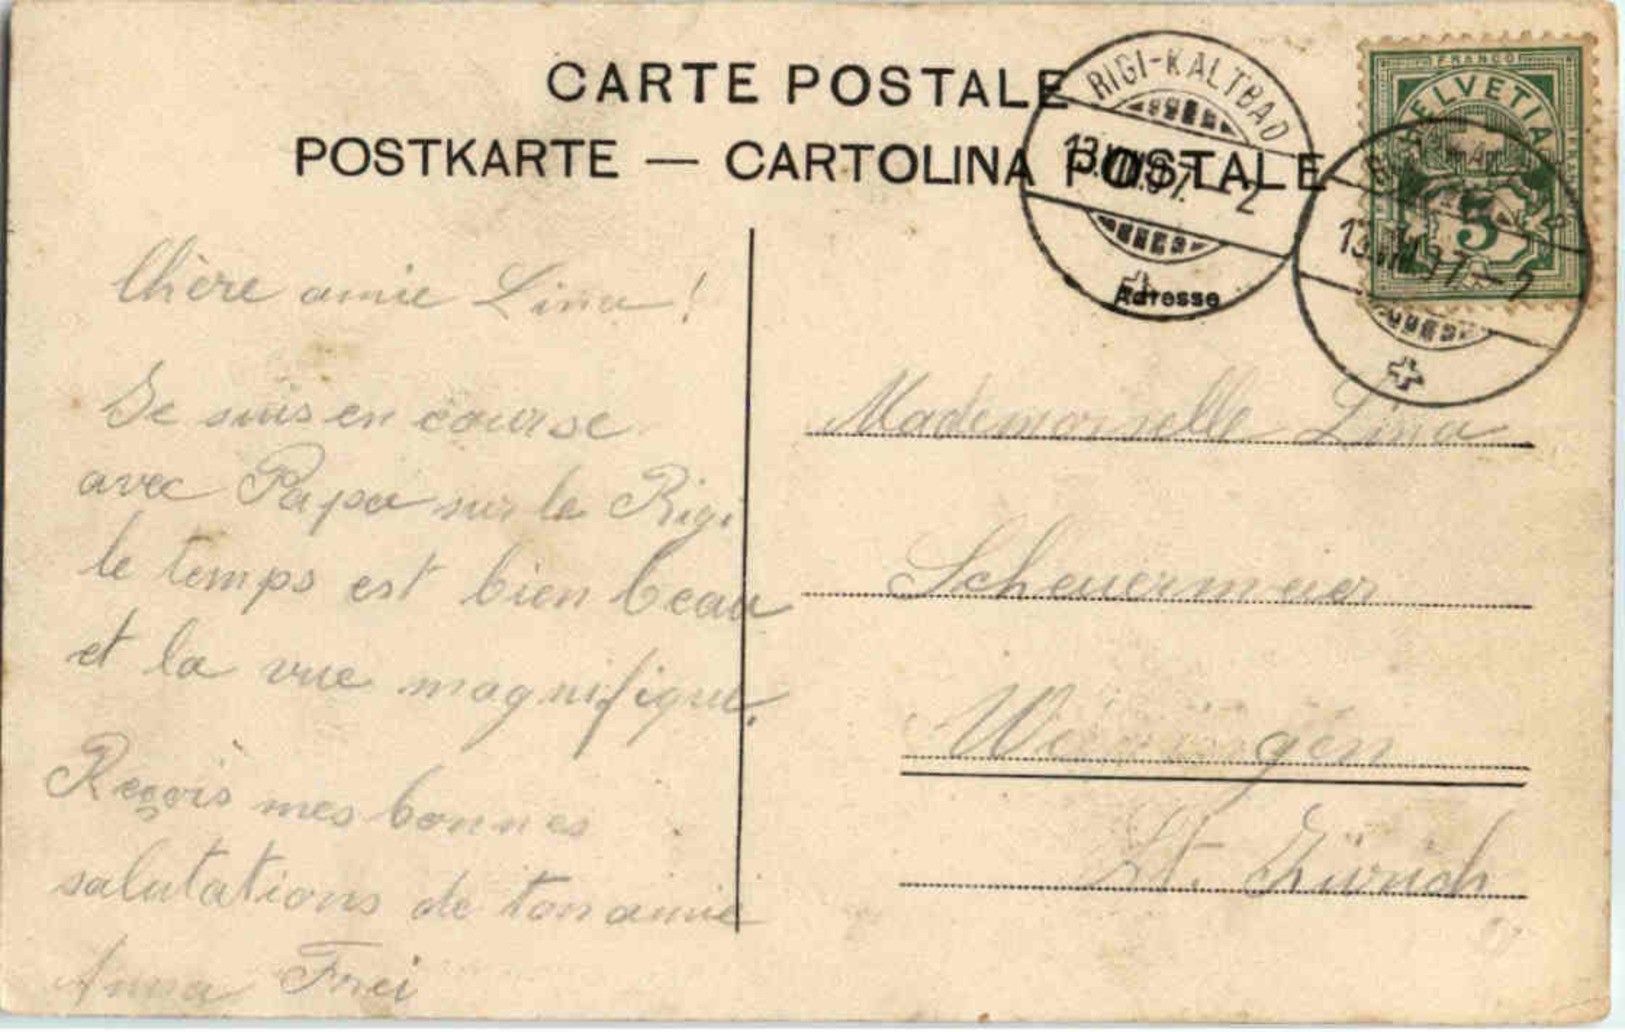 CARTE POSTALE
POSTKARTE — CARTOLINA POSTALE
RIGI-KALTBAD
13.VIII.07.-2
FRANCO
HELVETIA
5
13.VIII.
Adresse
Chère amie Lina!
Je suis en course
avec Papa sur le Rigi
le temps est bien beau
et la vue magnifique.
Reçois mes bonnes
salutations de ton amie
Anna Frei
Mademoiselle Lina
Scheuermeier
Kt. Zürich